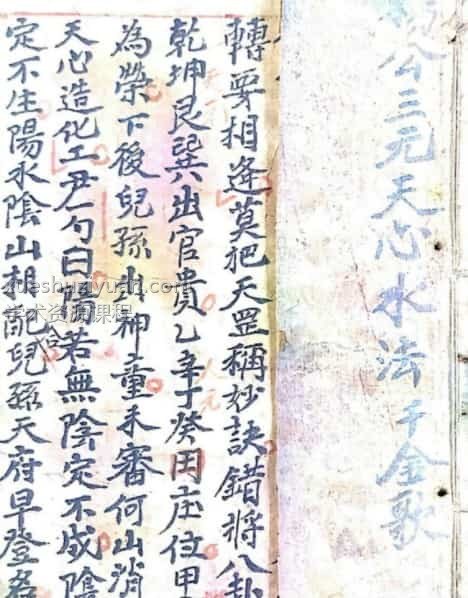 公三元天心水法千金歌
轉要相逢莫把天罡稱妙訣錯將八卦
乾坤艮巽出官貴乙辛丁癸田庄位甲
為榮下後兒孫出神童未審何山消
天心造化工尹一勺曰陽若無陰定不成陰
定不生陽水陰山相配兒孫天府早登名
xueshuziyuan.com
学术资源课程